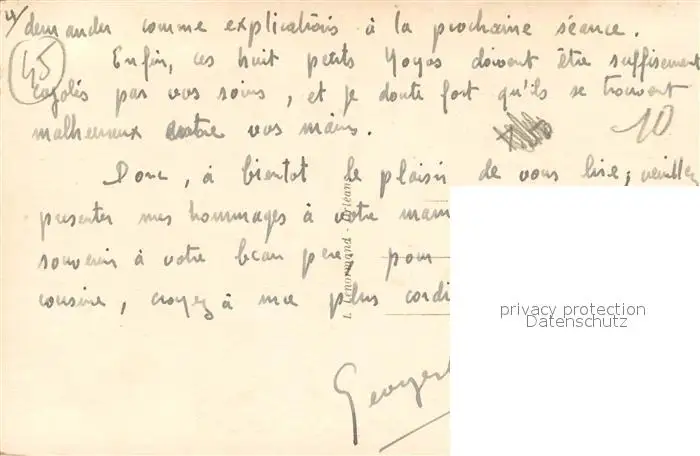 4/ demander comme explications à la prochaine séance.
45
Enfin, ces huit petits Yoyos doivent être suffisement
cajolés par vos soins, et je doute fort qu'ils se trouvent
malheureux entre vos mains.
10
Donc, à bientot le plaisir de vous lire, veuillez
présenter mes hommages à votre mam
souvenir à votre beau père, pour
cousine, croyez à me plus cordi
Georges
L. Lenormand - Orléans
privacy protection
Datenschutz